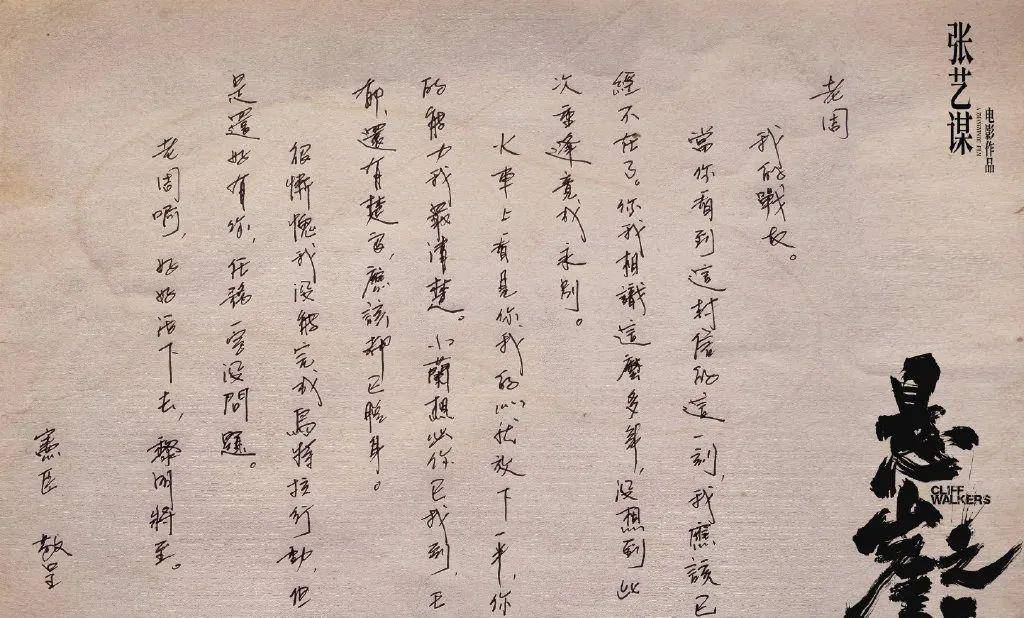 张艺谋
电影作品
悬崖之
CLIFF
WALKERS
老周
我的戰友。
當你看到這封信的這一刻,我應該已
經不在了。你我相識這麼多年,沒想到此
次重逢竟成永別。
火車上看見你,我的心就放下一半,你
的能力我最清楚。小蘭想必你已找到,王
郁,還有楚良,應該都已脫身。
很慚愧我沒能完成烏特拉行動,但
是還好有你,任務一定沒問題。
老周啊,好好活下去,黎明將至。
憲臣 敬呈